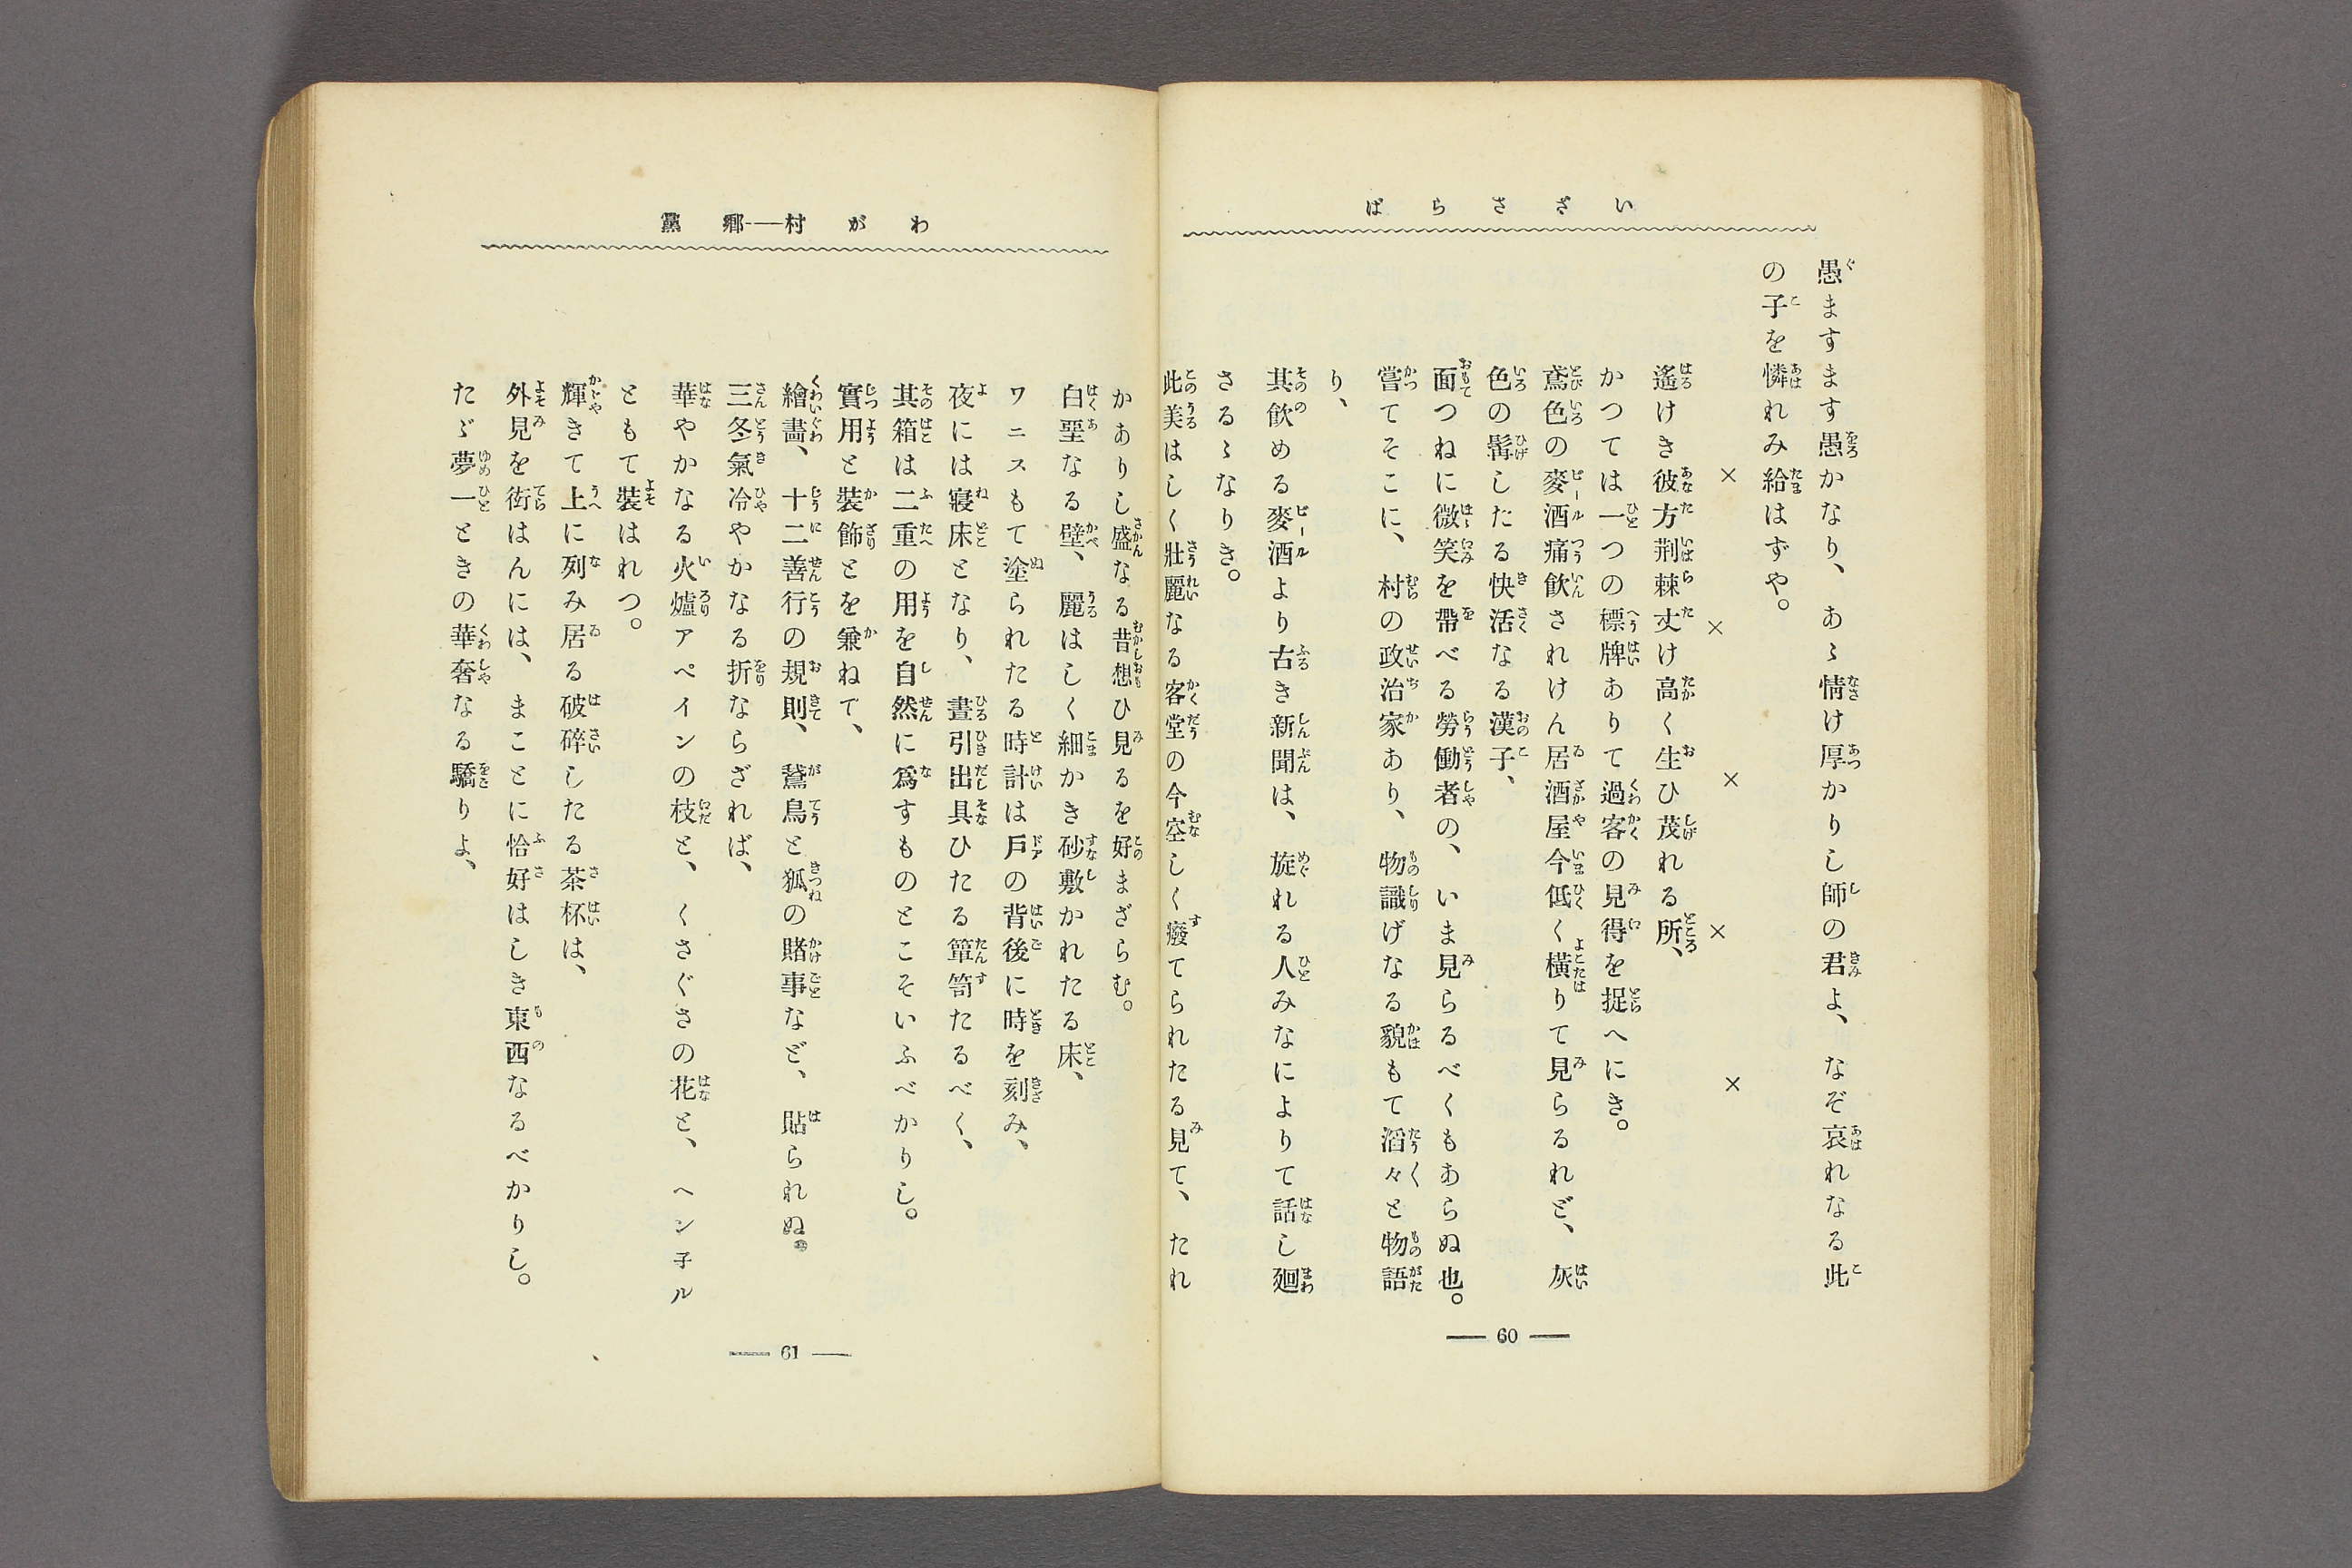 いざさらば
愚ますます愚かなり、あゝ情け厚かりし師の君よ、なぞ哀れなる此
の子を憐れみ給はずや。
× × × × ×
遙けき彼方荆棘丈け高く生ひ茂れる所、
かつては一つの標牌ありて過客の見得を捉へにき。
鳶色の麥酒痛飮されけん居酒屋今低く横りて見らるれど、灰
色の髯したる快活なる漢子、
面つねに微笑を帶べる勞働者の、いま見らるべくもあらぬ也。
嘗てそこに、村の政治家あり、物識げなる貌もて滔々と物語
り、
其飮める麥酒より古き新聞は、旋れる人みなによりて話し廻
さるゝなりき。
此美はしく壯麗なる客堂の今空しく癈てられたる見て、たれ
— 60 —
わが村——郷黨
かありし盛なる昔想ひ見るを好まざらむ。
白堊なる壁、麗はしく細かき砂敷かれたる床、
ワニスもて塗られたる時計は戸の背後に時を刻み、
夜には寢床となり、晝引出具ひたる簞笥たるべく、
其箱は二重の用を自然に爲すものとこそいふべかりし。
實用と裝飾とを兼ねて、
繪畵、十二善行の規則、鵞鳥と狐の賭事など、貼られぬ。
三冬氣冷やかなる折ならざれば、
華やかなる火爐アペインの枝と、くさぐさの花と、ヘン子ル
ともて裝はれつ。
輝きて上に列み居る破碎したる茶杯は、
外見を衒はんには、まことに恰好はしき東西なるべかりし。
たゞ夢一ときの華奢なる驕りよ、
— 61 —